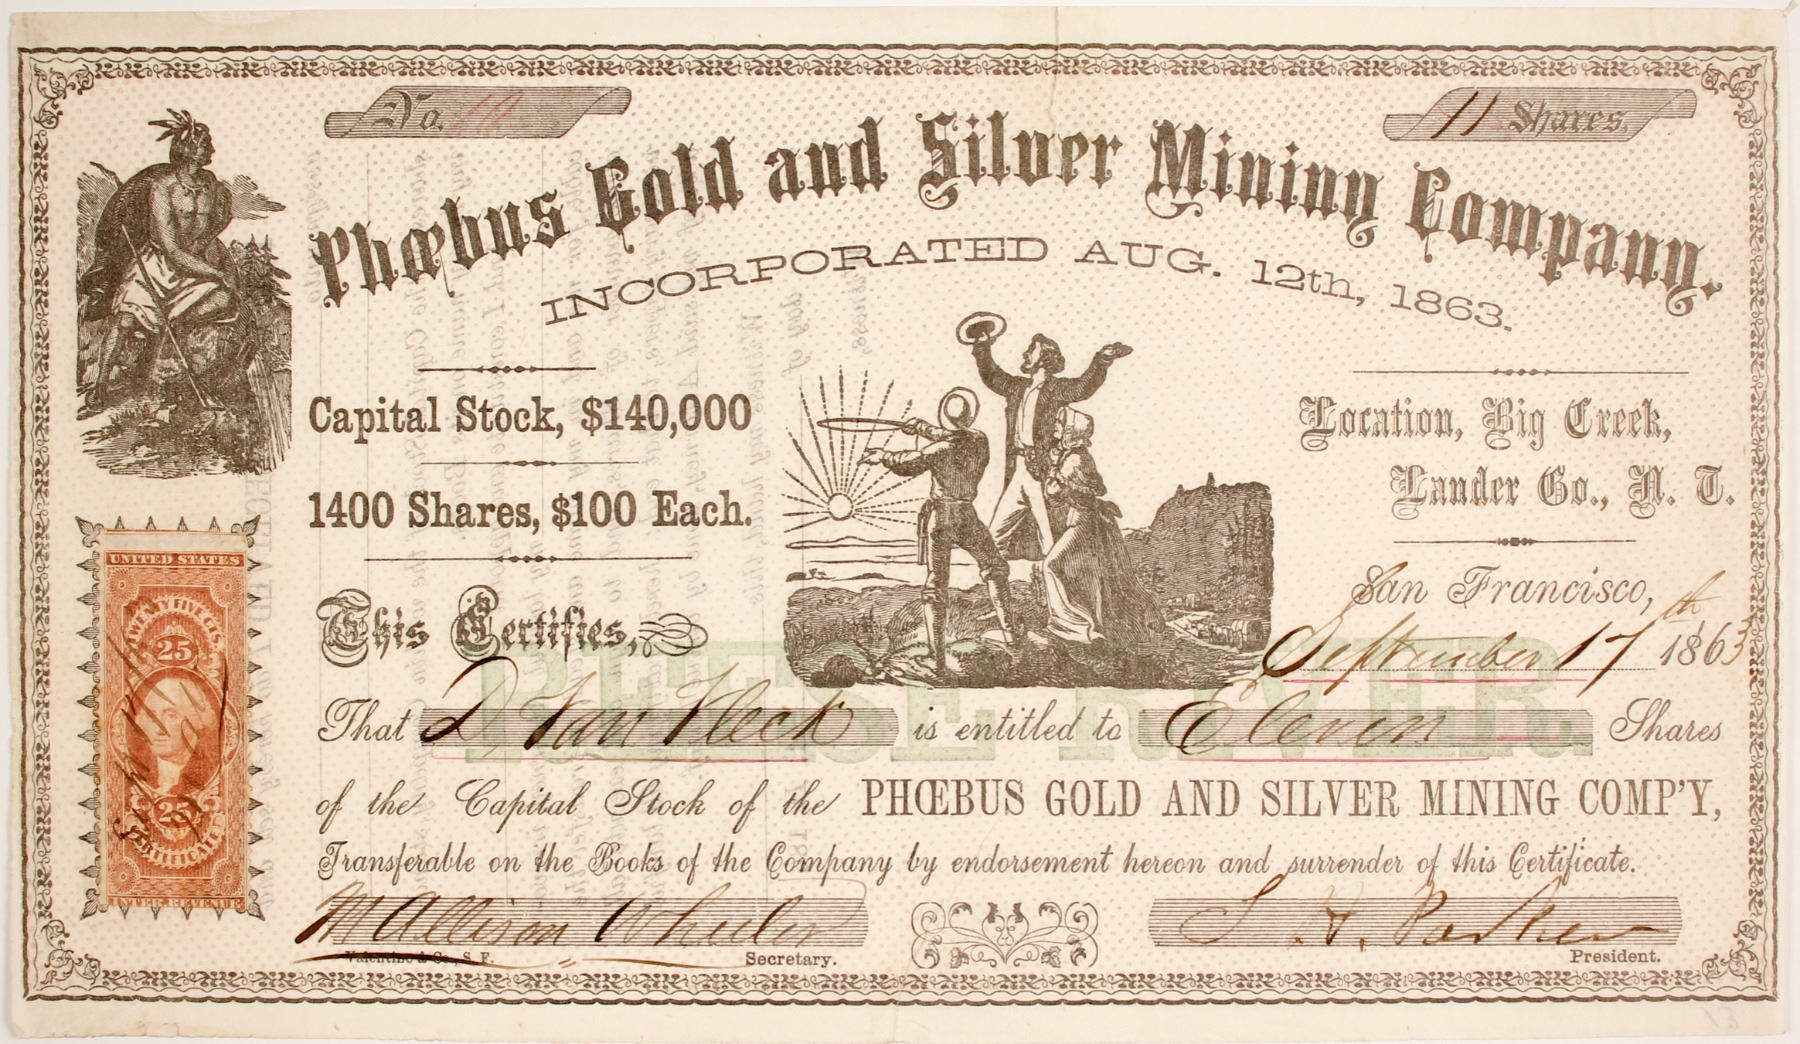 No. 19
11 Shares.
Phœbus Gold and Silver Mining Company.
INCORPORATED AUG. 12th, 1863.
Capital Stock, $140,000
1400 Shares, $100 Each.
Location, Big Creek,
Lander Co., N. T.
San Francisco,
September 17th 1863
This Certifies,
That D Van Vleck is entitled to Eleven Shares
of the Capital Stock of the PHŒBUS GOLD AND SILVER MINING COMP'Y,
Transferable on the Books of the Company by endorsement hereon and surrender of this Certificate.
M Allison Wheeler
L. H. Parker
Valentine & Co., S. F.
Secretary.
President.
REESE RIVER.
UNITED STATES
TWENTY FIVE CTS.
25
25 25
CERTIFICATE
INTER. REVENUE